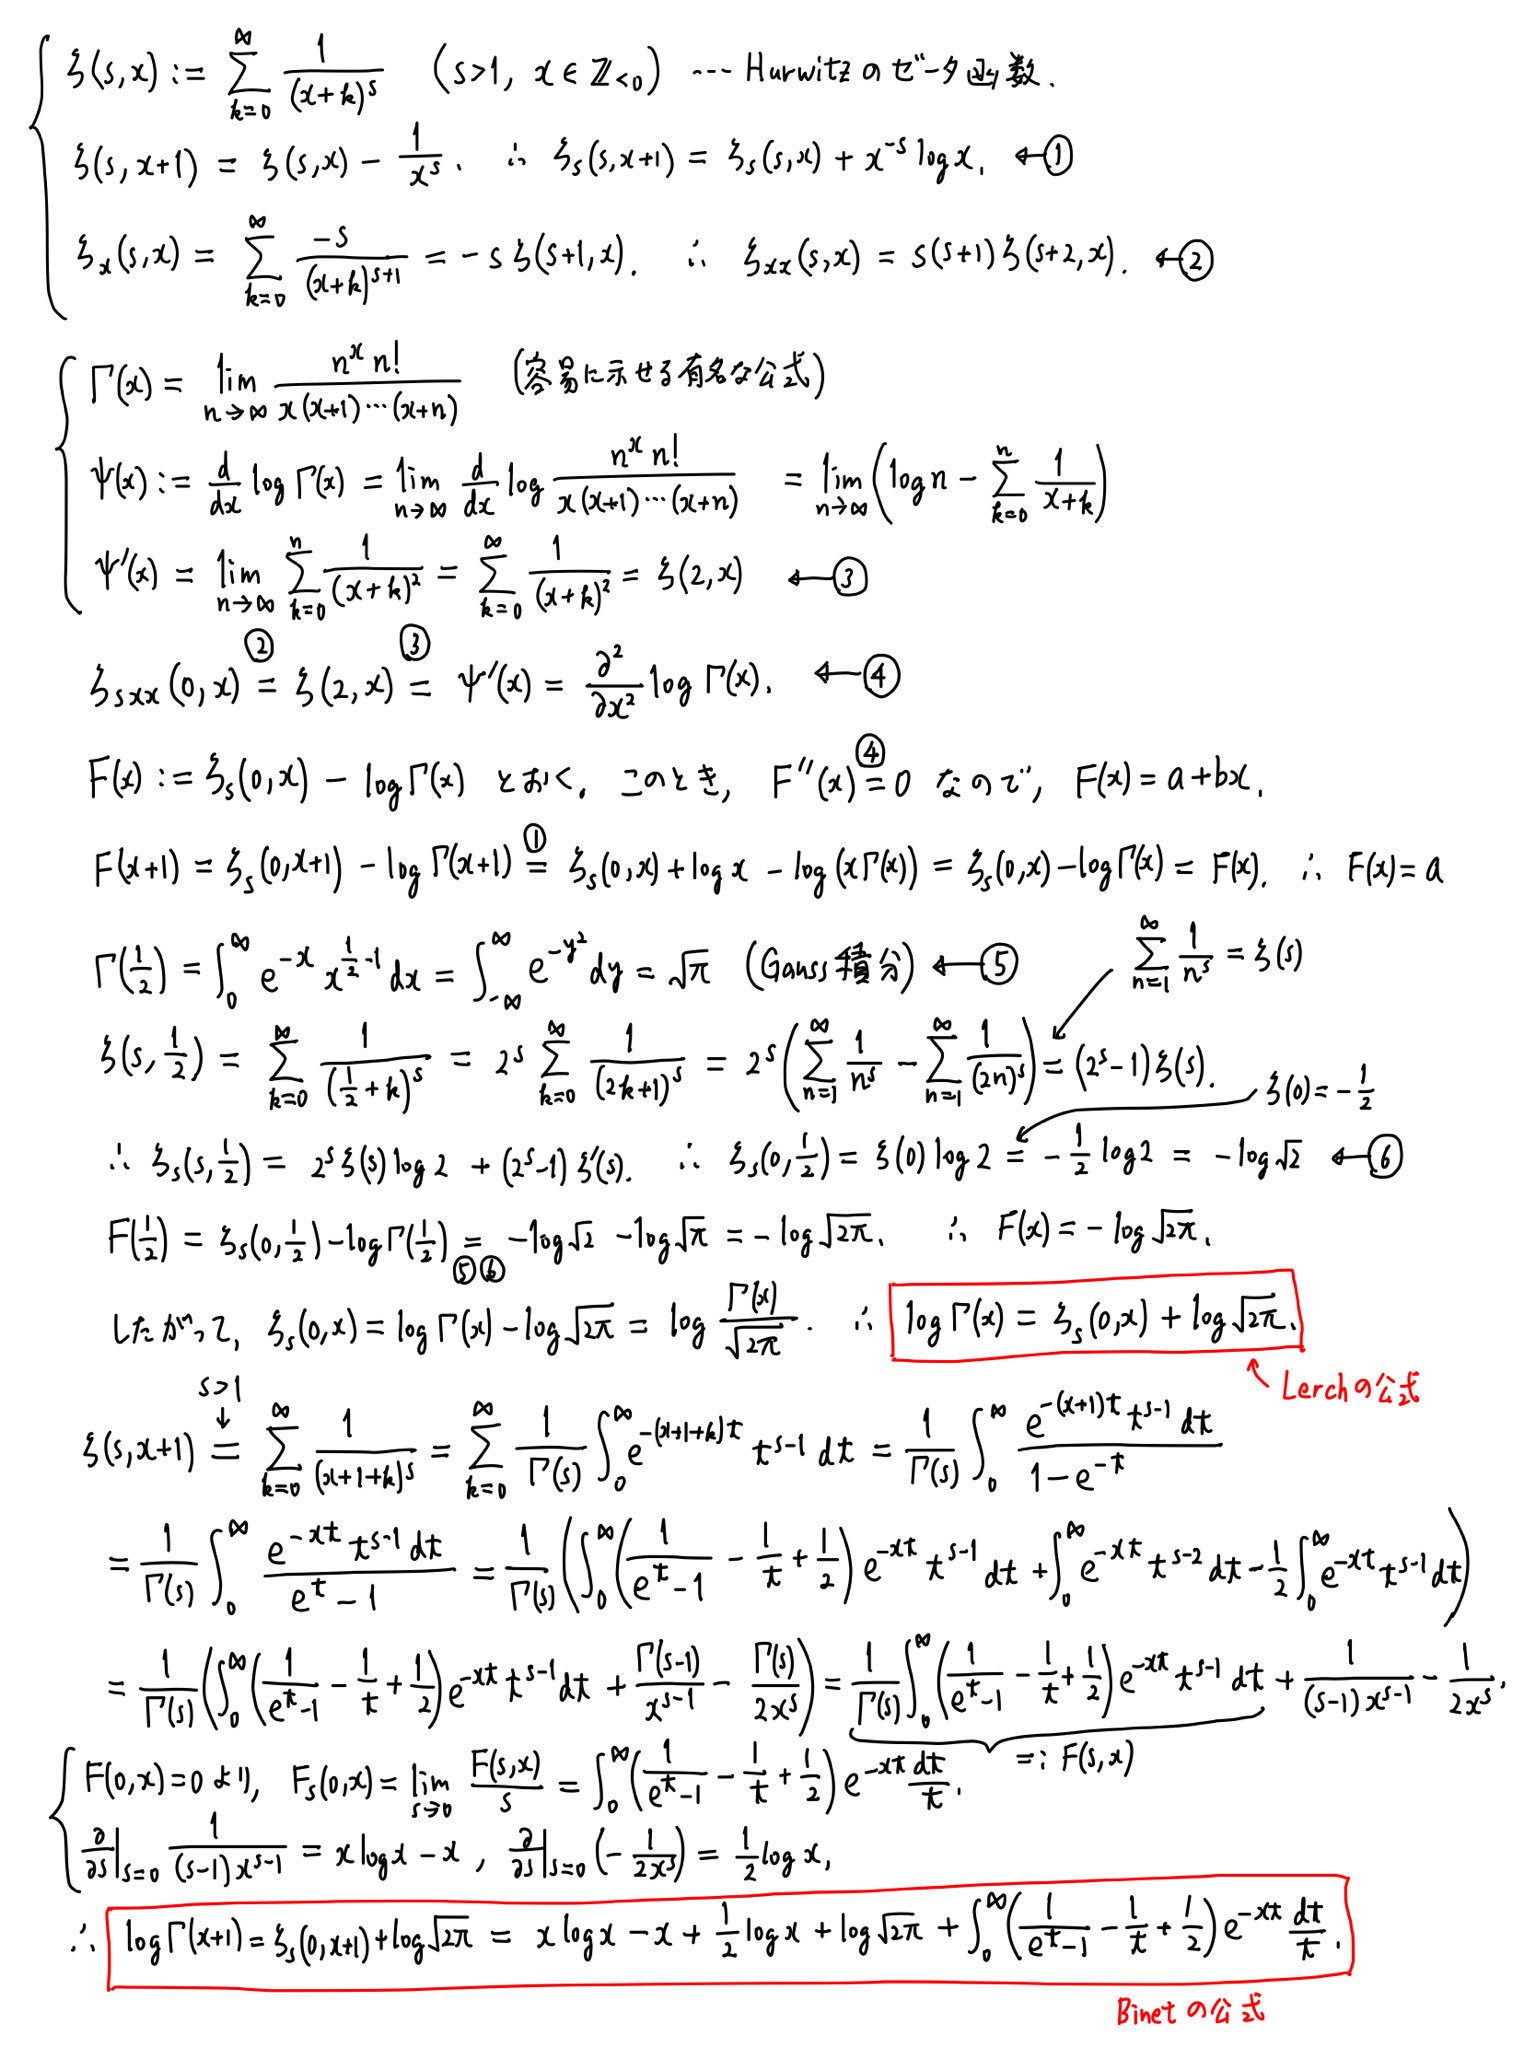 ζ(s,x) := ∑_{k=0}^{∞} 1/(x+k)^s (s>1, x∈ℤ_{<0}) … Hurwitzのゼータ函数.
ζ(s,x+1) = ζ(s,x) − 1/x^s. ∴ ζ_s(s,x+1) = ζ_s(s,x) + x^{-s} log x. ←①
ζ_x(s,x) = ∑_{k=0}^{∞} −s/(x+k)^{s+1} = −s ζ(s+1,x). ∴ ζ_{xx}(s,x) = s(s+1)ζ(s+2,x). ←②
Γ(x) = lim_{n→∞} n^x n!/(x(x+1)⋯(x+n)) (容易に示せる有名な公式)
Ψ(x) := d/dx log Γ(x) = lim_{n→∞} d/dx log n^x n!/(x(x+1)⋯(x+n)) = lim_{n→∞} (log n − ∑_{k=0}^{n} 1/(x+k))
Ψ′(x) = lim_{n→∞} ∑_{k=0}^{n} 1/(x+k)^2 = ∑_{k=0}^{∞} 1/(x+k)^2 = ζ(2,x) ←③
ζ_{sxx}(0,x) =② ζ(2,x) =③ Ψ′(x) = ∂²/∂x² log Γ(x). ←④
F(x) := ζ_s(0,x) − log Γ(x) とおく. このとき, F″(x) =④ 0 なので, F(x) = a+bx.
F(x+1) = ζ_s(0,x+1) − log Γ(x+1) =① ζ_s(0,x) + log x − log(xΓ(x)) = ζ_s(0,x) − log Γ(x) = F(x). ∴ F(x) = a
Γ(1/2) = ∫_0^∞ e^{-x} x^{1/2 -1} dx = ∫_{-∞}^∞ e^{-y²} dy = √π (Gauss積分) ←⑤ ∑_{n=1}^{∞} 1/n^s = ζ(s)
ζ(s,1/2) = ∑_{k=0}^{∞} 1/(1/2+k)^s = 2^s ∑_{k=0}^{∞} 1/(2k+1)^s = 2^s (∑_{n=1}^{∞} 1/n^s − ∑_{n=1}^{∞} 1/(2n)^s) = (2^s−1)ζ(s). ζ(0) = −1/2
∴ ζ_s(s,1/2) = 2^s ζ(s) log 2 + (2^s−1) ζ′(s). ∴ ζ_s(0,1/2) = ζ(0) log 2 = −1/2 log 2 = −log√2 ←⑥
F(1/2) = ζ_s(0,1/2) − log Γ(1/2) =⑤⑥ −log√2 − log√π = −log√2π. ∴ F(x) = −log√2π.
したがって, ζ_s(0,x) = log Γ(x) − log√2π = log Γ(x)/√2π. ∴ log Γ(x) = ζ_s(0,x) + log√2π.
Lerchの公式
s>1
ζ(s,x+1) = ∑_{k=0}^{∞} 1/(x+1+k)^s = ∑_{k=0}^{∞} 1/Γ(s) ∫_0^∞ e^{-(x+1+k)t} t^{s-1} dt = 1/Γ(s) ∫_0^∞ e^{-(x+1)t} t^{s-1} dt/(1−e^{-t})
= 1/Γ(s) ∫_0^∞ e^{-xt} t^{s-1} dt/(e^t−1) = 1/Γ(s) (∫_0^∞ (1/(e^t−1) − 1/t + 1/2) e^{-xt} t^{s-1} dt + ∫_0^∞ e^{-xt} t^{s-2} dt − 1/2 ∫_0^∞ e^{-xt} t^{s-1} dt)
= 1/Γ(s) (∫_0^∞ (1/(e^t−1) − 1/t + 1/2) e^{-xt} t^{s-1} dt + Γ(s−1)/x^{s-1} − Γ(s)/2x^s) = 1/Γ(s) ∫_0^∞ (1/(e^t−1) − 1/t + 1/2) e^{-xt} t^{s-1} dt + 1/((s−1)x^{s-1}) − 1/2x^s.
=: F(s,x)
F(0,x)=0 より, F_s(0,x) = lim_{s→0} F(s,x)/s = ∫_0^∞ (1/(e^t−1) − 1/t + 1/2) e^{-xt} dt/t.
∂/∂s|_{s=0} 1/((s−1)x^{s-1}) = x log x − x, ∂/∂s|_{s=0} (−1/2x^s) = 1/2 log x,
∴ log Γ(x+1) = ζ_s(0,x+1) + log√2π = x log x − x + 1/2 log x + log√2π + ∫_0^∞ (1/(e^t−1) − 1/t + 1/2) e^{-xt} dt/t.
Binetの公式